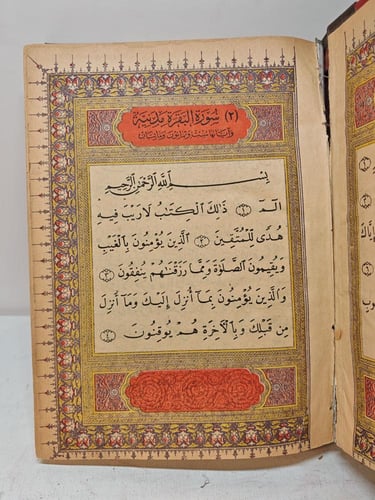 (٢) سُورَةُ الْبَقَرَةِ مَدَنِيَّةٌ
وَآيَاتُهَا سِتٌّ وَثَمَانُونَ وَمِائَتَانِ
بِسْمِ اللَّهِ الرَّحْمَٰنِ الرَّحِيمِ
الٓمٓ ۝١ ذَٰلِكَ الْكِتَٰبُ لَا رَيْبَ فِيهِ
هُدًى لِلْمُتَّقِينَ ۝٢ الَّذِينَ يُؤْمِنُونَ بِالْغَيْبِ
وَيُقِيمُونَ الصَّلَوٰةَ وَمِمَّا رَزَقْنَٰهُمْ يُنْفِقُونَ ۝٣
وَالَّذِينَ يُؤْمِنُونَ بِمَا أُنْزِلَ إِلَيْكَ وَمَا أُنْزِلَ
مِنْ قَبْلِكَ وَبِالْآخِرَةِ هُمْ يُوقِنُونَ ۝٤